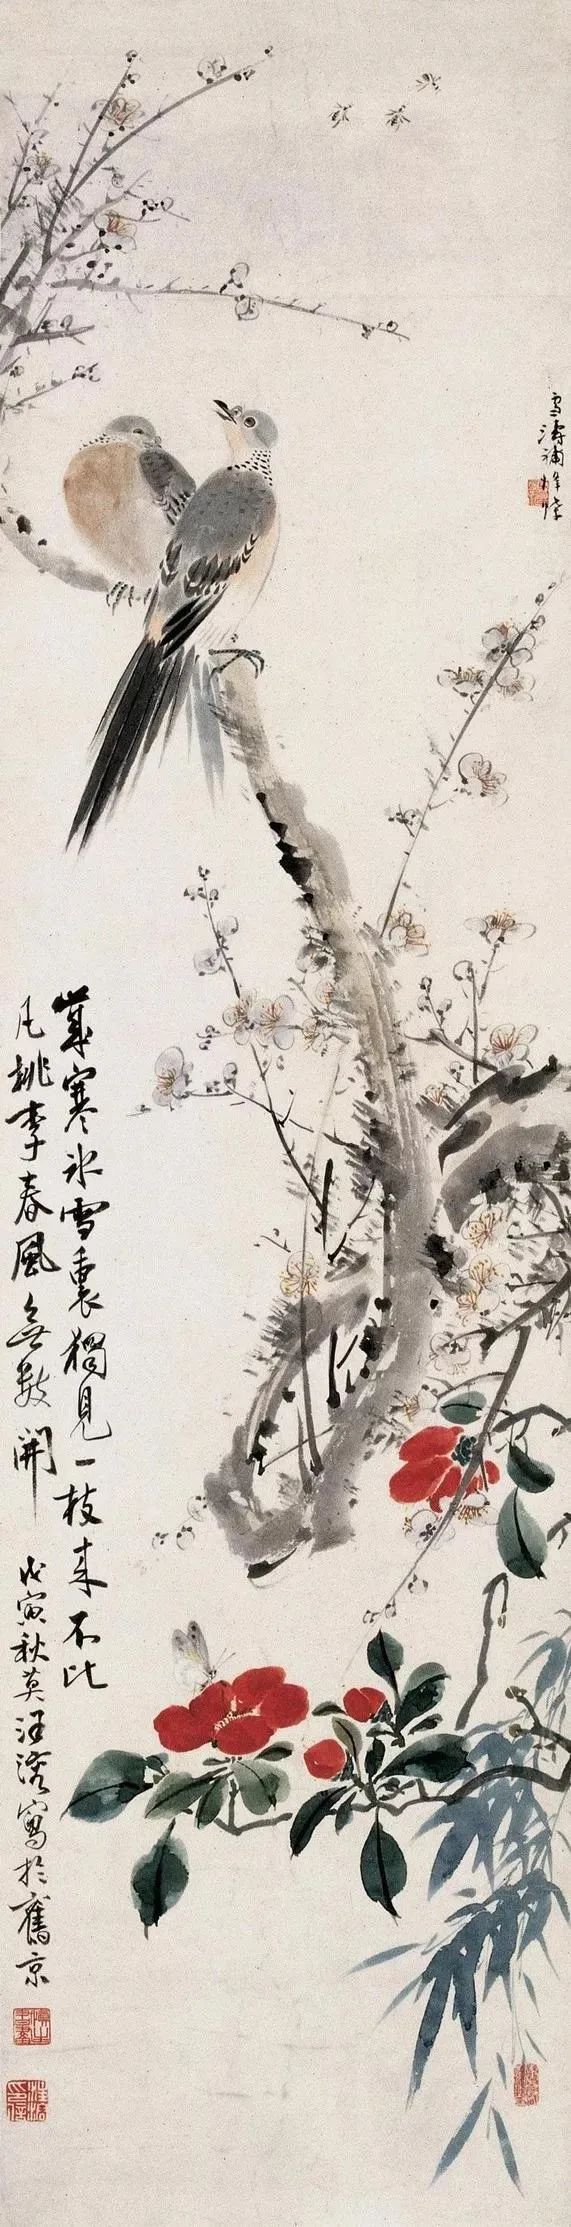 雪濤補蜂蝶
歲寒冰雪裏獨見一枝来不比
凡桃李春風無數開 戊寅秋莫汪溶寫於舊京